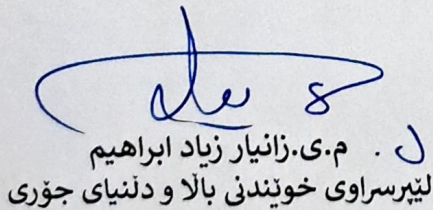 ل . م.ی.زانیار زیاد ابراهیم
لێپرسراوی خوێندنی باڵا و دڵنیای جۆری